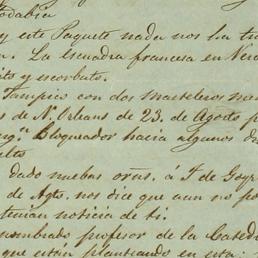 todabía
y este Paquete nada nos ha tra
n. La escuadra francesa en Vera
ito y escorbuto.
Tampico con dos masteleros men
s de N. Orleans de 23. de Agosto p
Bloqueador hacia algunos di
elto
dado nuebas orns. á F de Goyr
de Agto, nos dice que aun no po
tenian noticia de ti.
nombrado profesor de la Catedr
que están planteando en esta: